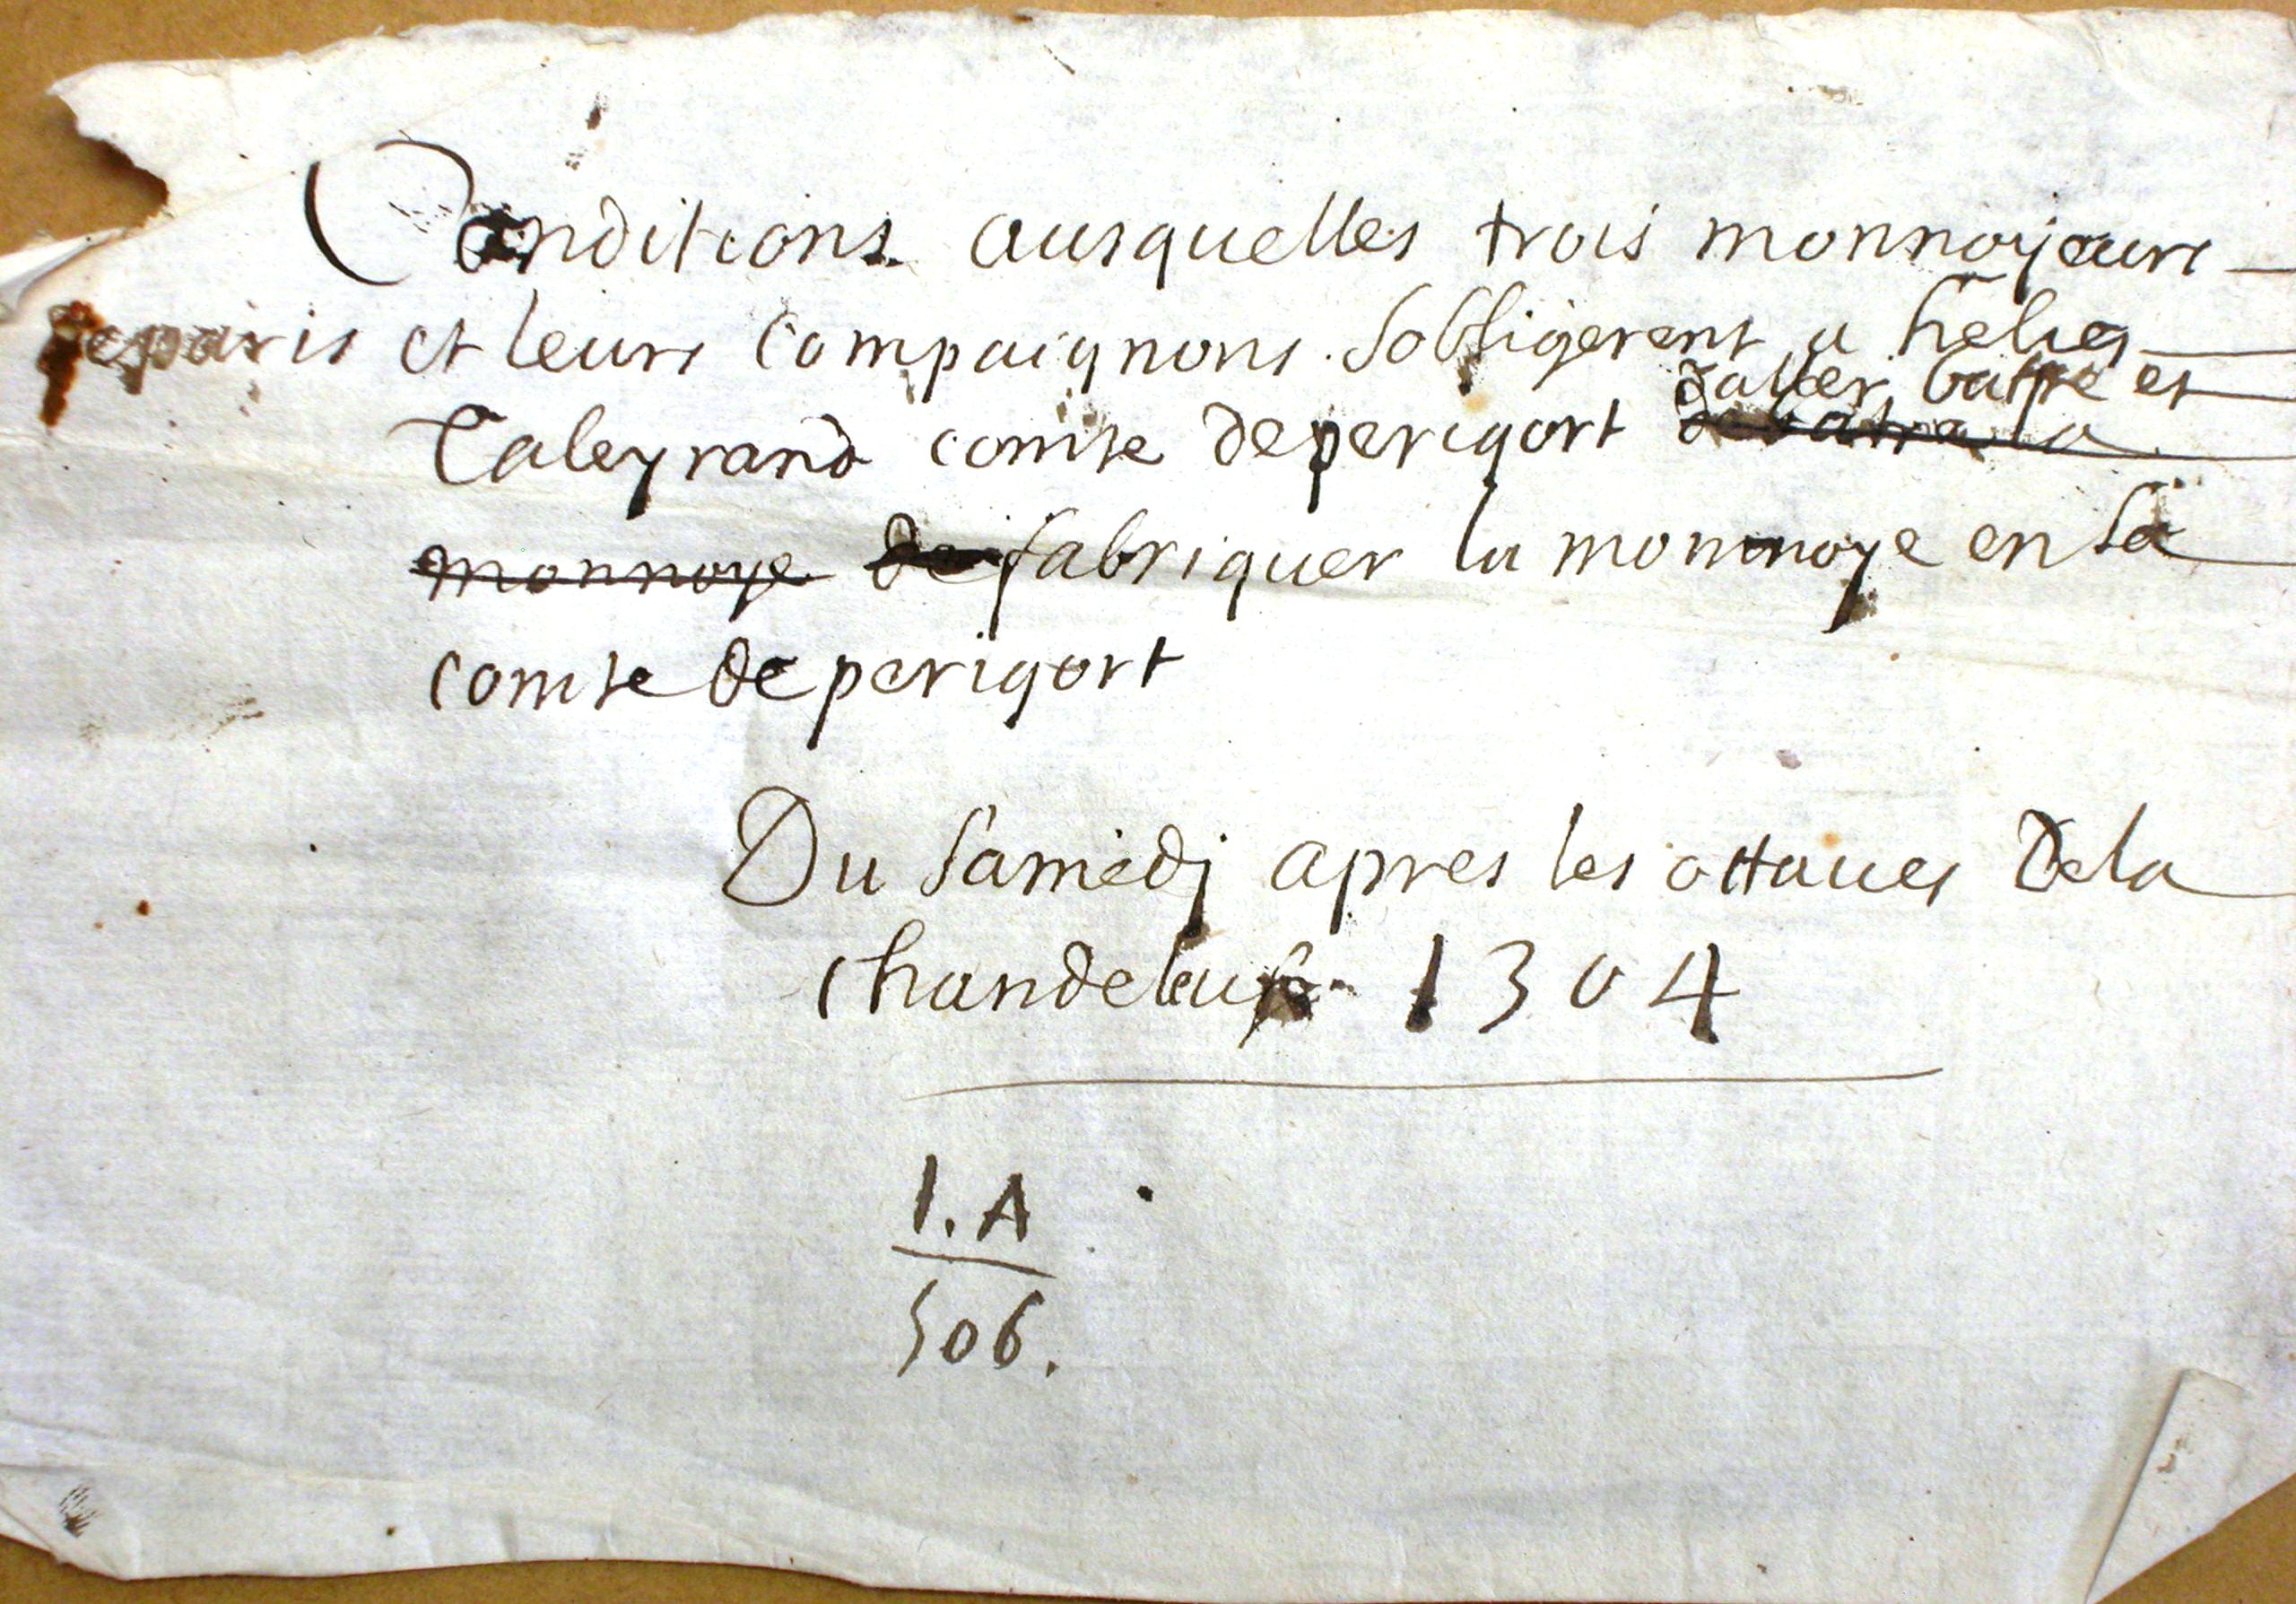 Conditions ausquelles trois monnoyeurs
de paris et leurs compaignons sobligerent a helies
daller battre et
Taleyrand comte de perigort de batre la
monnoye de fabriquer la monnoye en sa
comte de perigort
Du samedj apres les ottaues de la
chandeleur 1304
1.A
506.